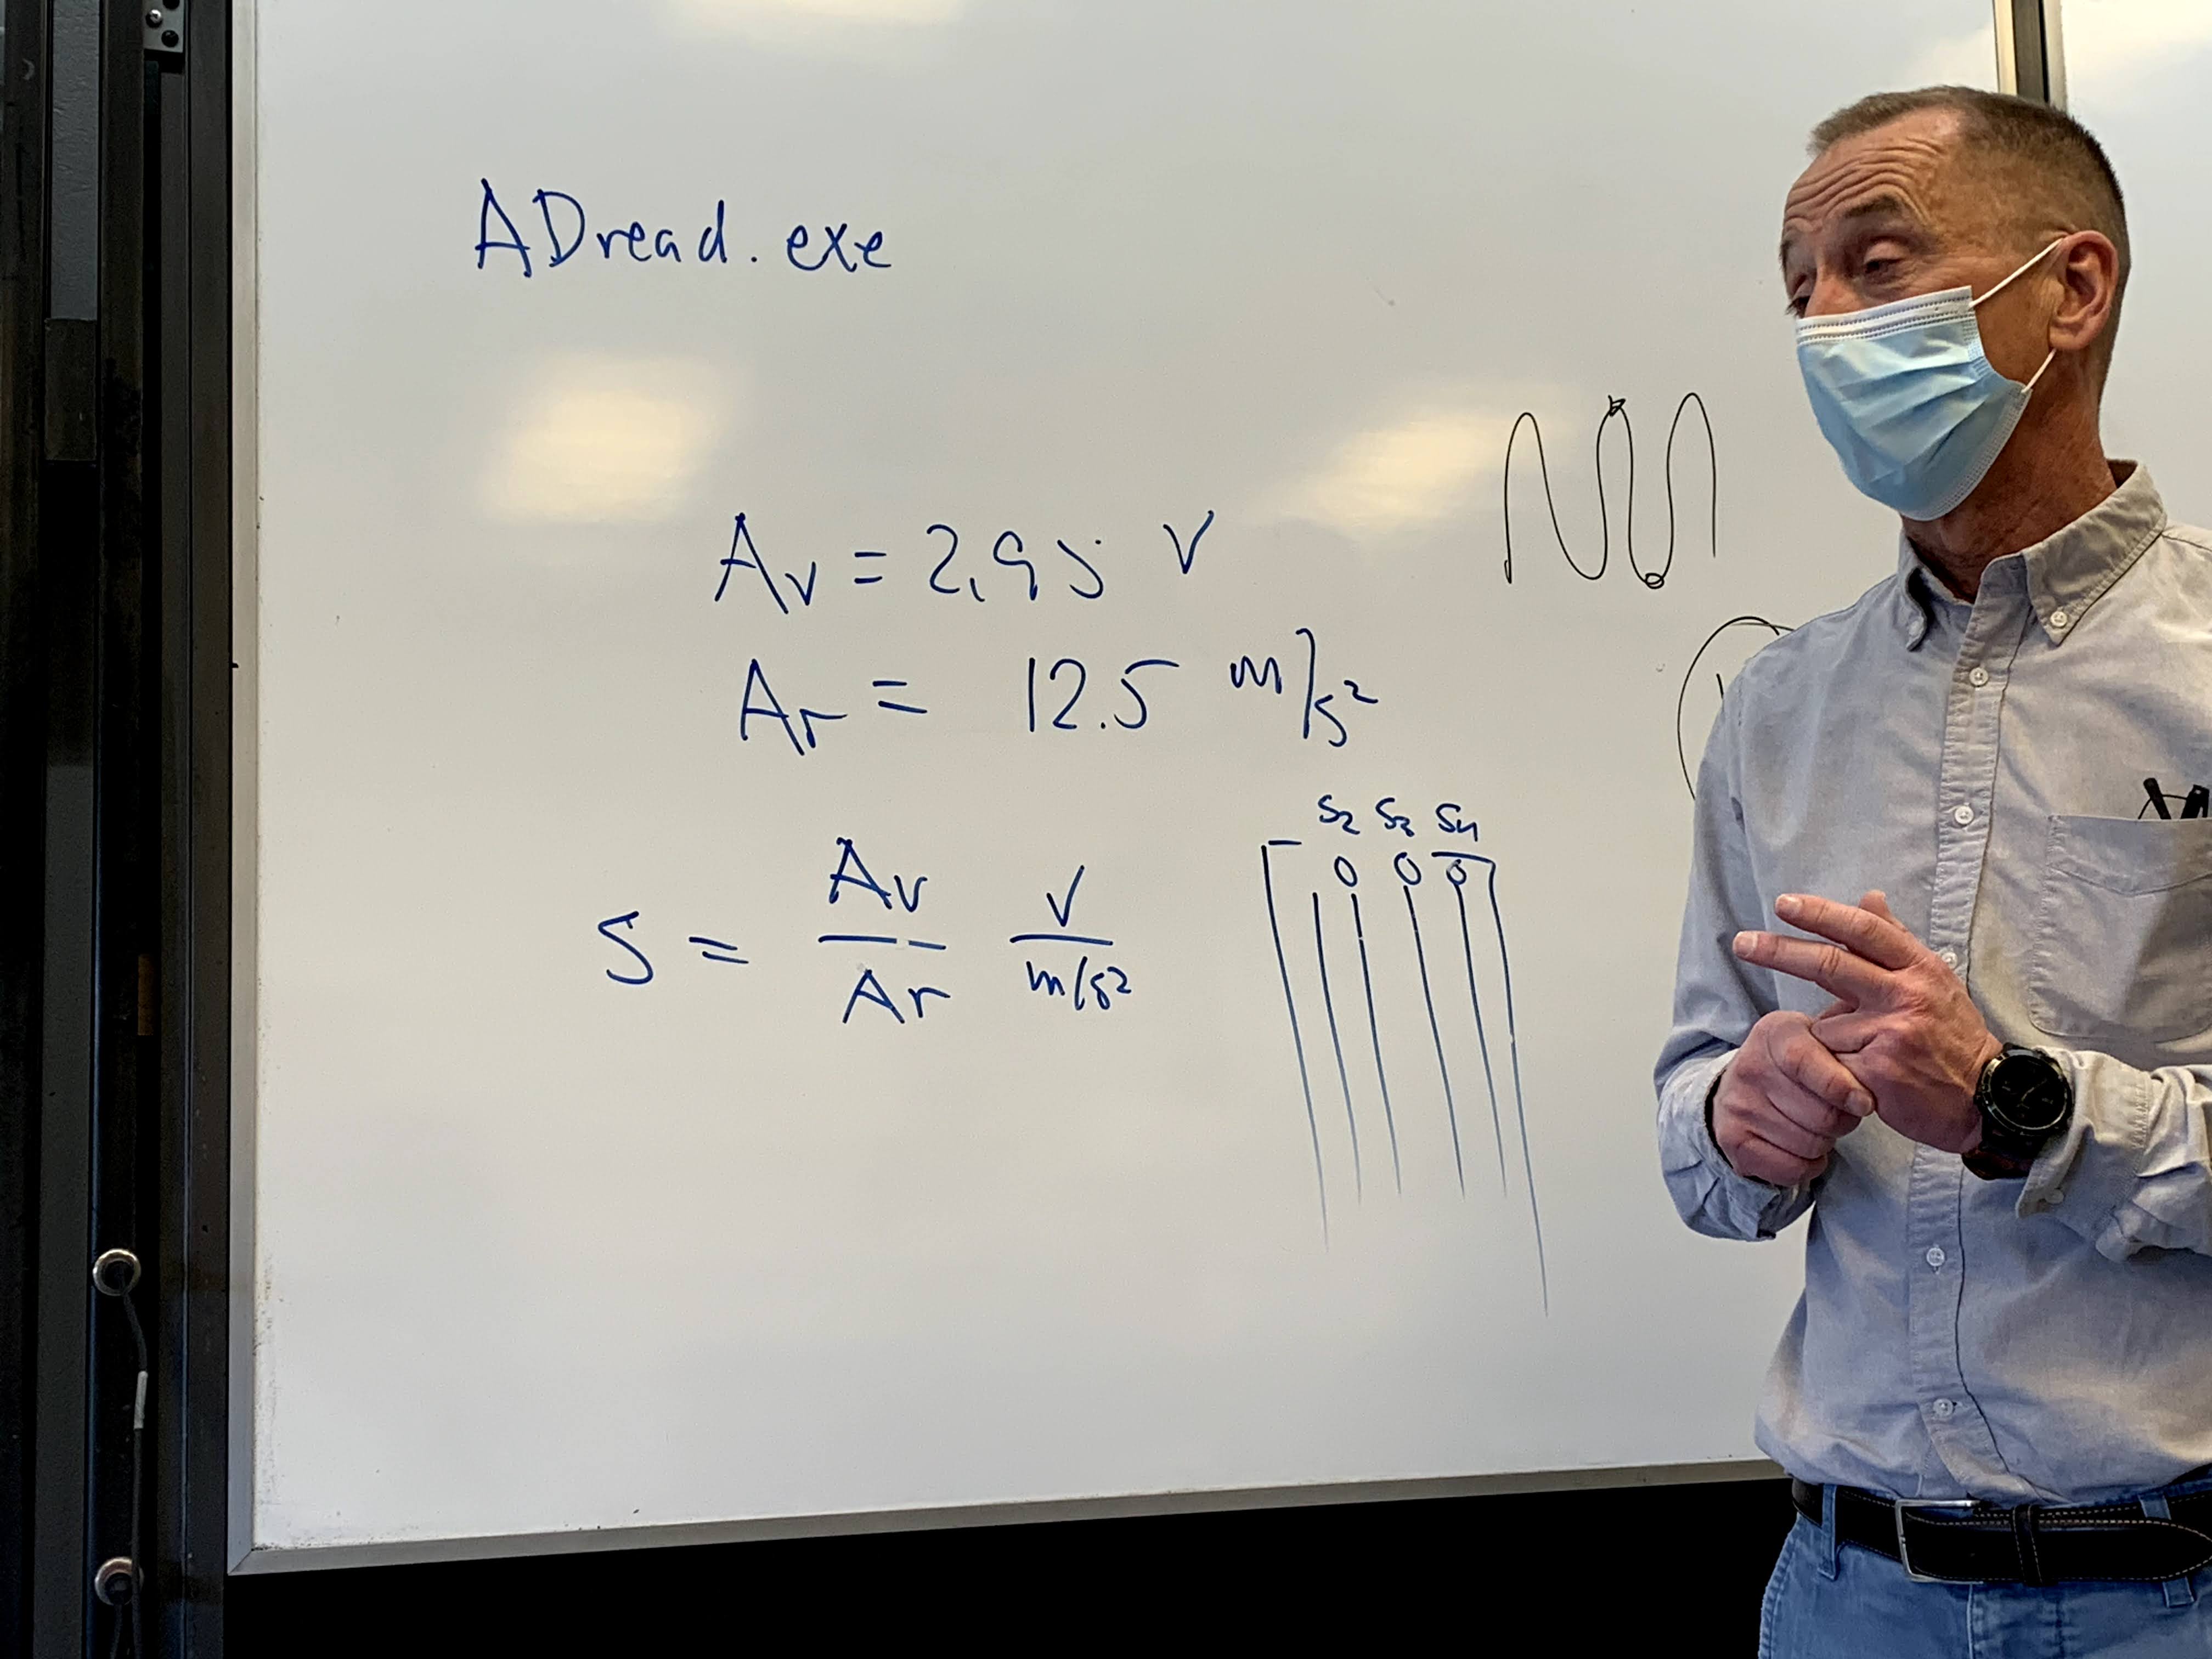 ADread.exe
Av = 2,95 V
Ar = 12.5 m/s²
S = Av/Ar V/m/s²
S2 S3 S4
0 0 0